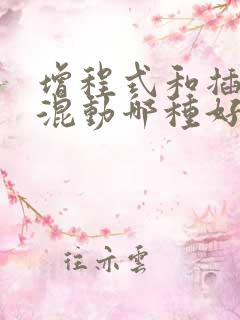 增程式和插
混動哪種好
往示雲